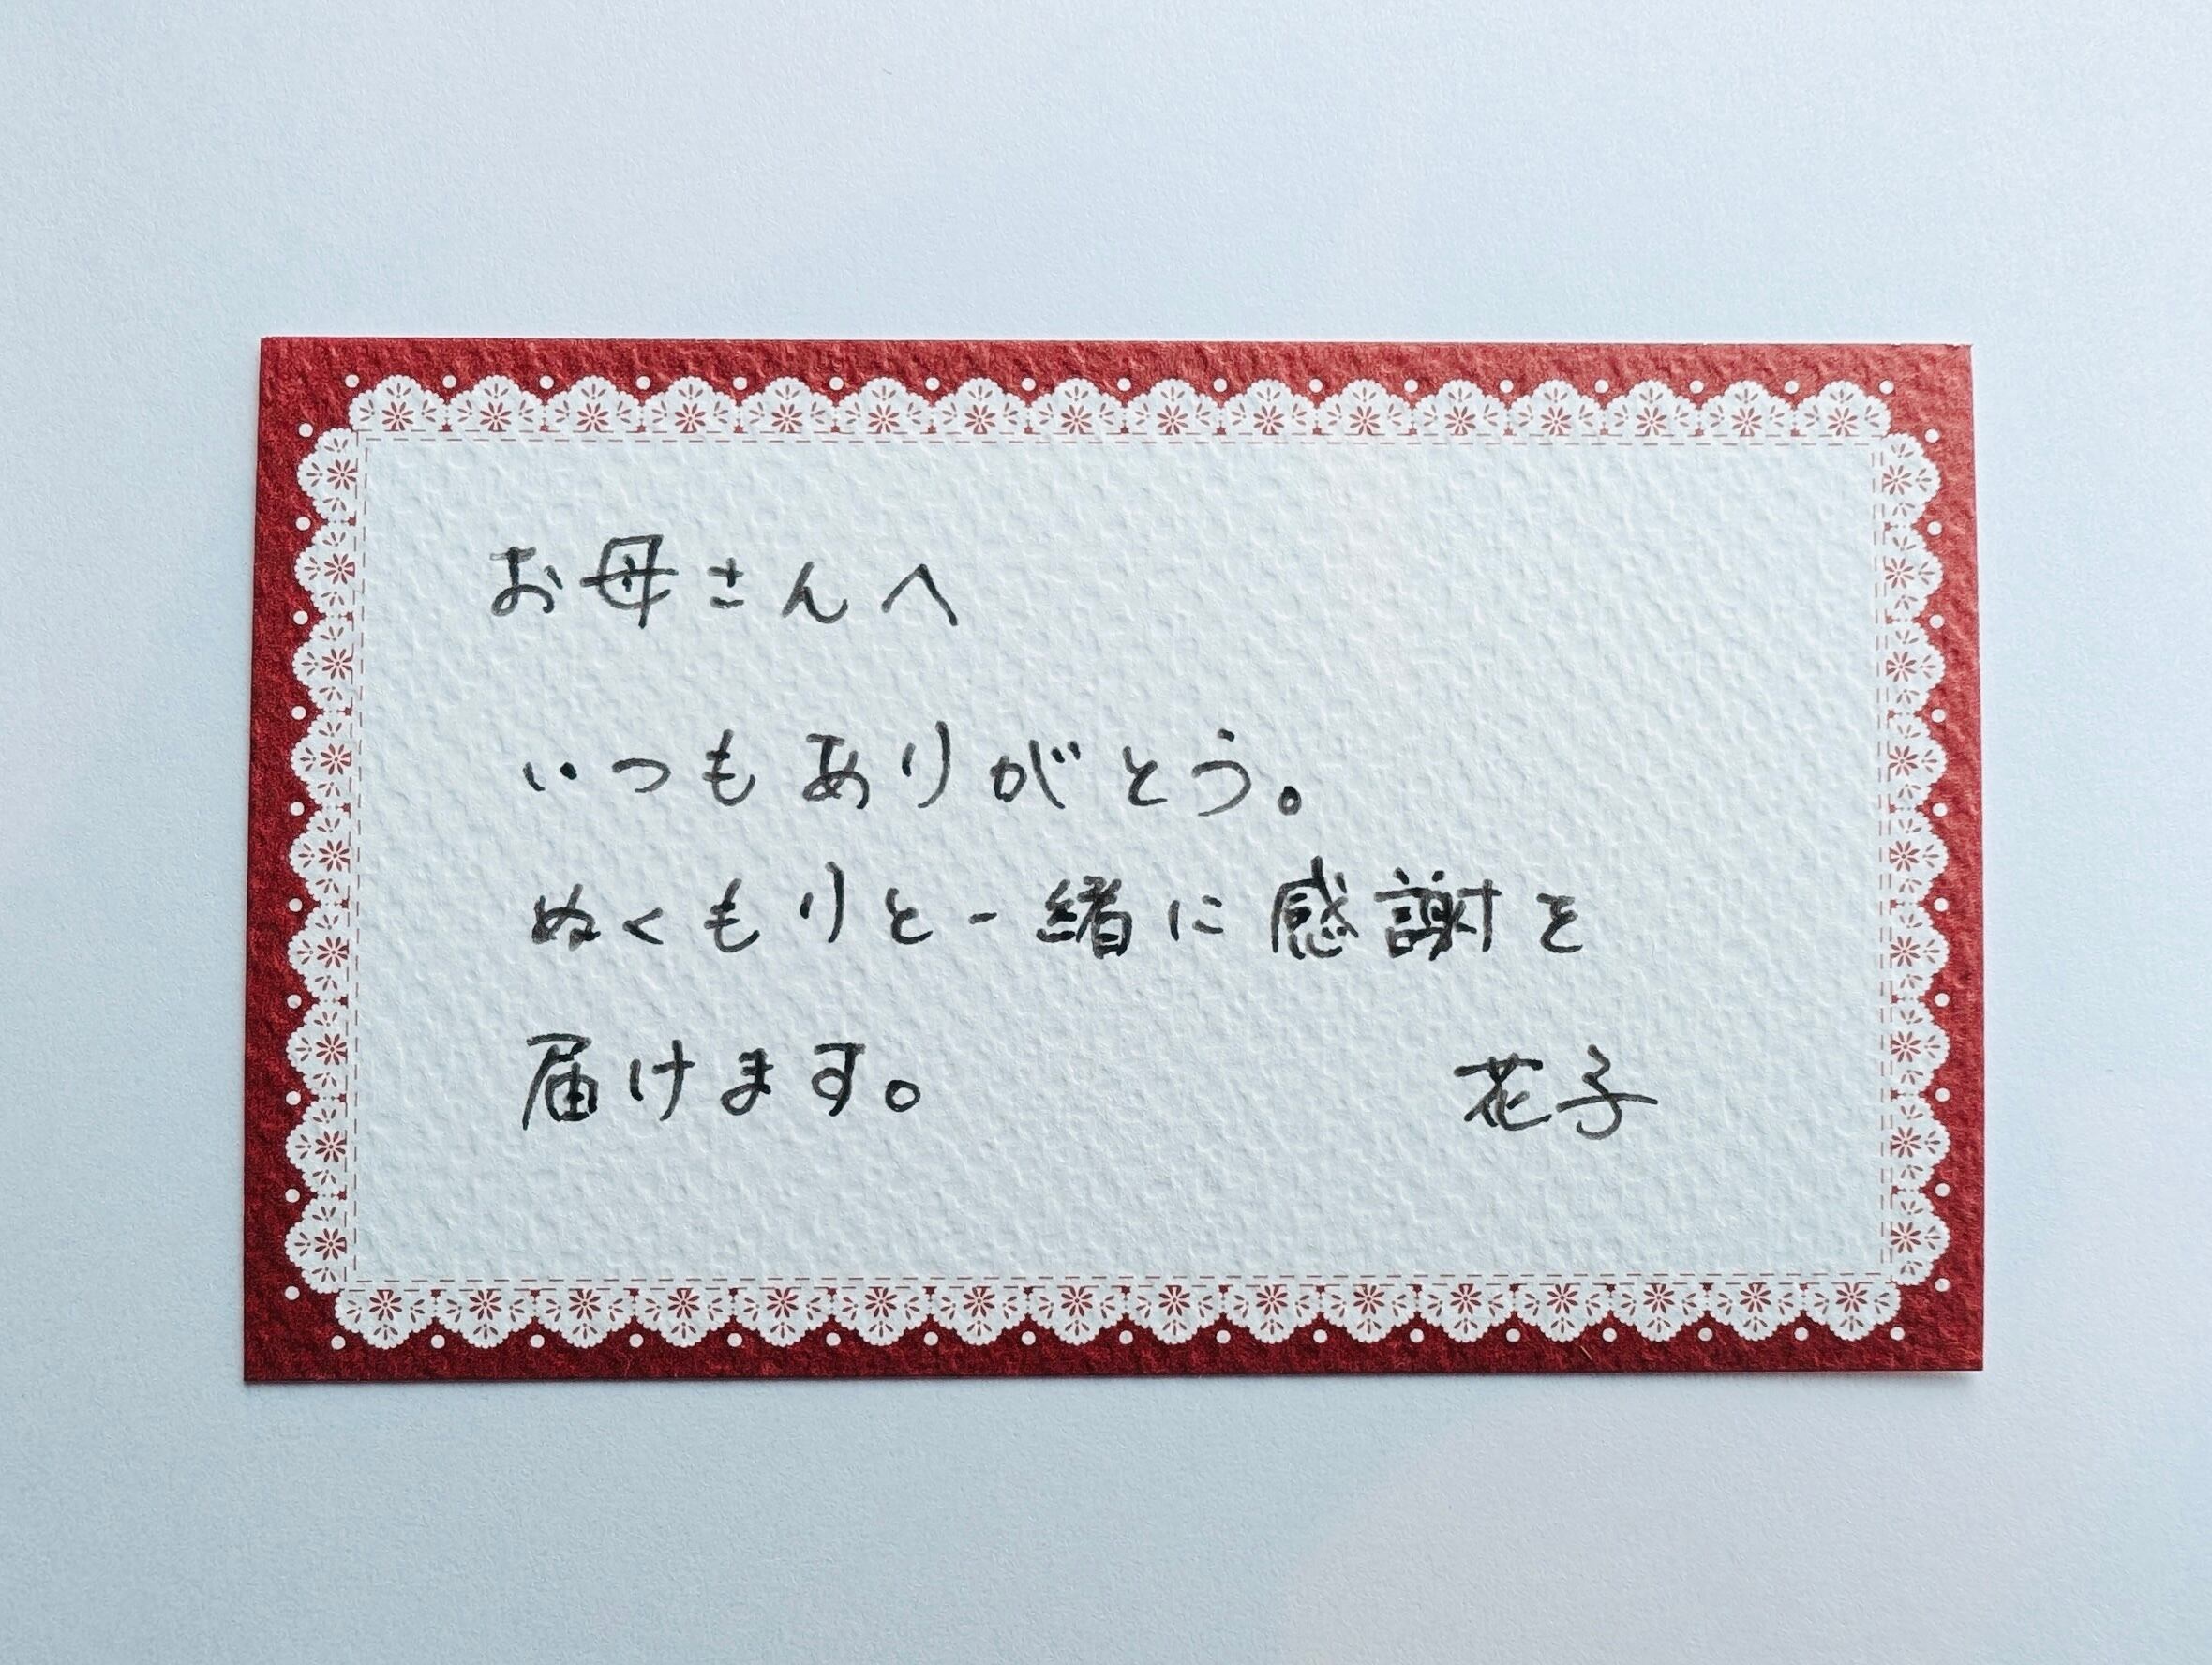 お母さんへ
いつもありがとう。
ぬくもりと一緒に感謝を
届けます。 花子